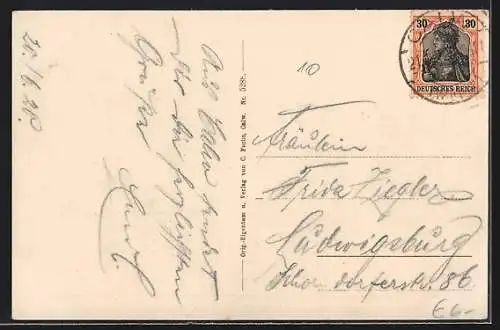 20./6.20.
Aus Calw sendet
Dir die herzlichsten
Grüße
Orig.-Eigentum u. Verlag von C. Fuchs, Calw. Nr. 5288.
10
30 30
DEUTSCHES REICH
Fräulein
Frida Ziegler
Ludwigsburg
Schorndorferstr. 86
€6.-